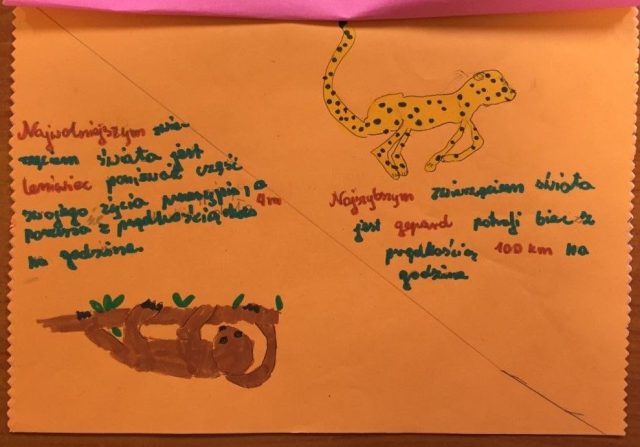 Najwolniejszym zwie-
rzęciem świata jest
leniwiec ponieważ część
swojego życia przesypia, a
porusza z prędkością około 4 m
na godzinę.
Najszybszym zwierzęciem świata
jest gepard potrafi biec z
prędkością 100 km na
godzinę